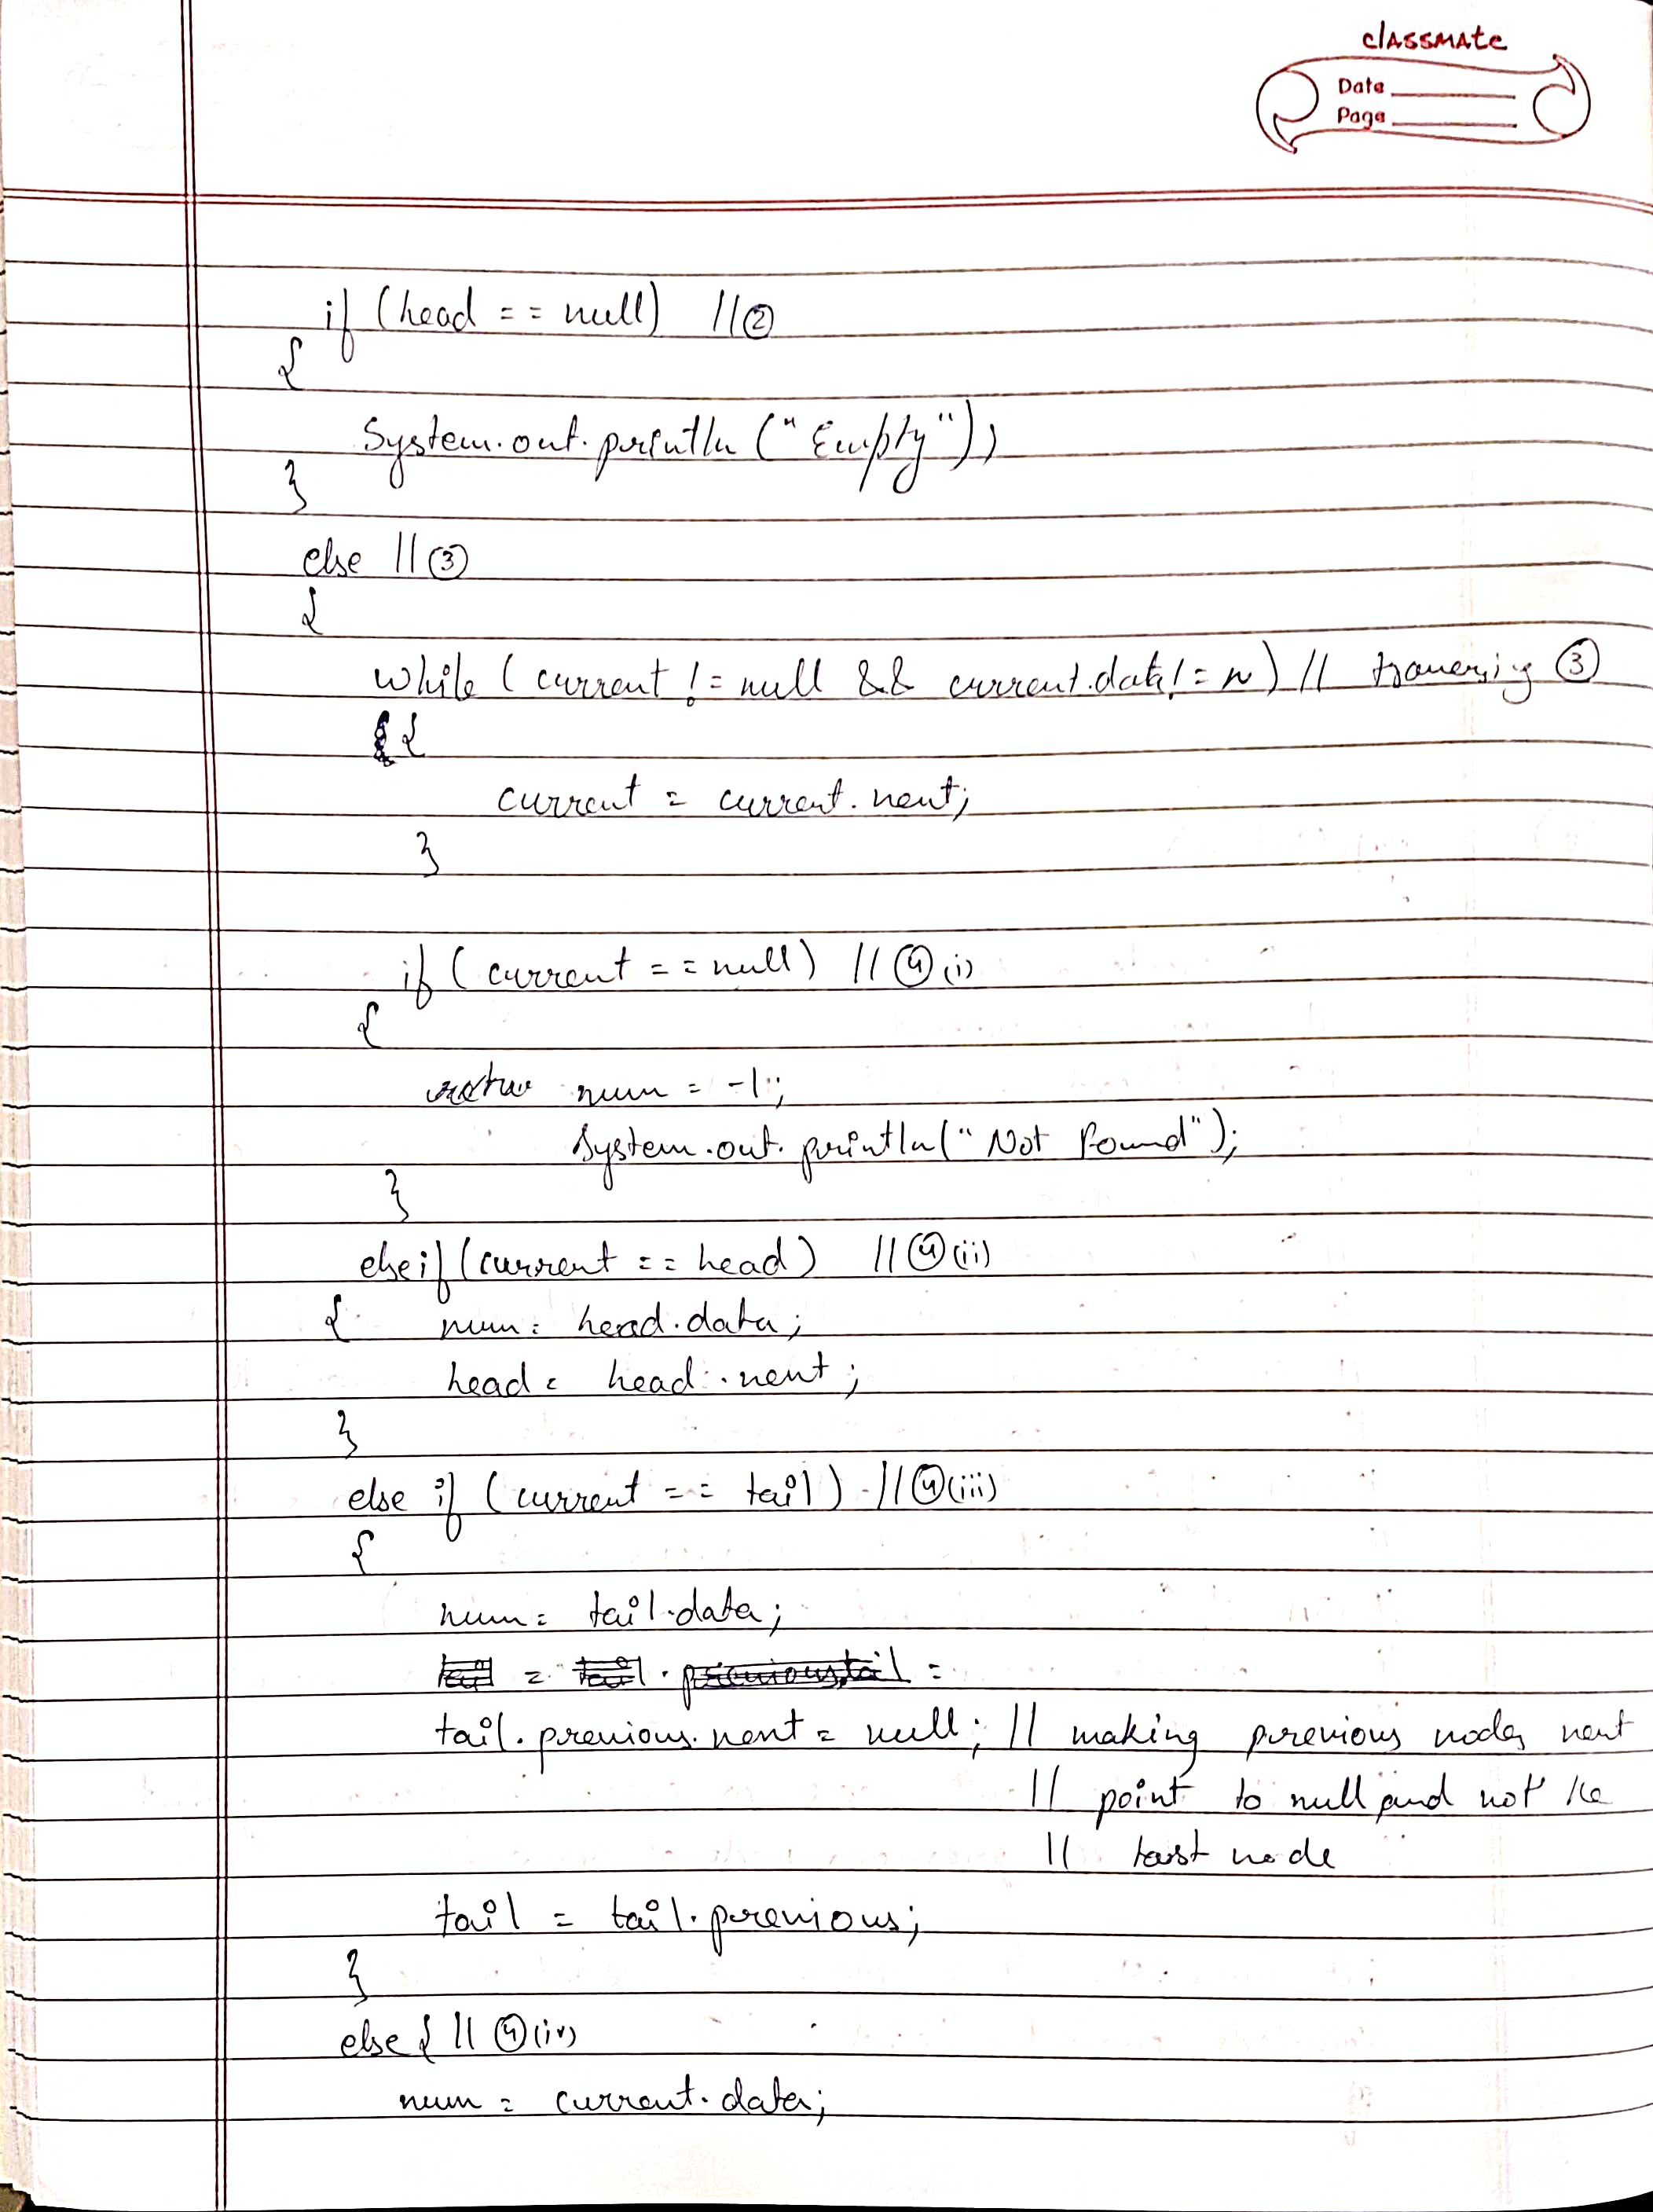 classmate
Date
Page
if (head == null) //②
{
System.out.println ("Empty");
}
else //③
{
while (current != null && current.data != n) // traversing ③
{
current = current.next;
}
if (current == null) //④(i)
{
num = -1;
System.out.println("Not Found");
}
else if (current == head) //④(ii)
{ num = head.data;
head = head.next;
}
else if (current == tail) //④(iii)
{
num = tail.data;
tail.previous.next = null; // making previous nodes next
// point to null and not the
// last node
tail = tail.previous;
}
else { //④(iv)
num = current.data;